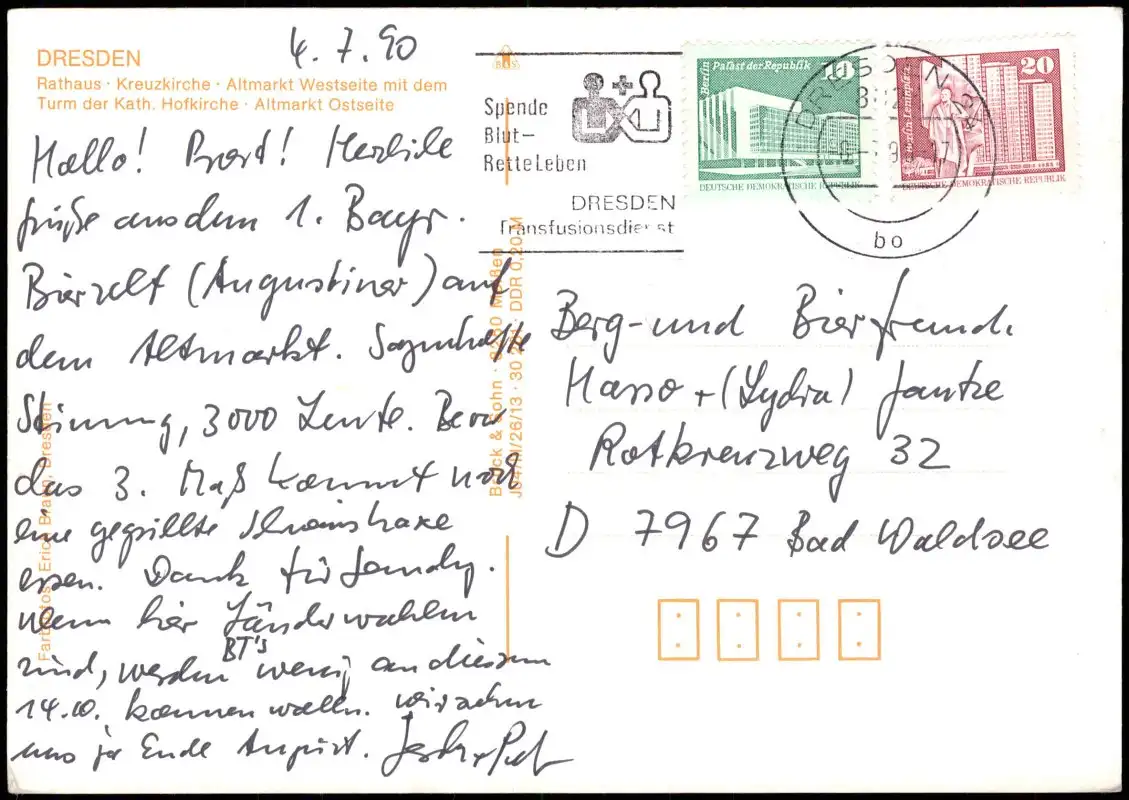 4.7.90
DRESDEN
Rathaus · Kreuzkirche · Altmarkt Westseite mit dem
Turm der Kath. Hofkirche · Altmarkt Ostseite
Hallo! Prost! Herzliche
Grüße aus dem 1. Bayr.
Bierzelt (Augustiner) auf
dem Altmarkt. Sagenhafte
Stimmung, 3000 Leute.
das 3. Maß kommt noch
eine gegrillte Schweinshaxe
essen. Dank für Sendg.
Wenn hier Länderwahlen
sind, werden BT's wenig an diesem
14.10. kommen wollen. Wir sehen
uns ja Ende August.
Spende
Blut-
Rette Leben
DRESDEN
Transfusionsdienst
Berlin Palast der Republik 10
DEUTSCHE DEMOKRATISCHE REPUBLIK
Berlin-Leninplatz 20
DEUTSCHE DEMOKRATISCHE REPUBLIK
DRESDEN
bo
Berg- und Bierfreunde
Hasso + (Lydia) Jantke
Rotkreuzweg 32
D 7967 Bad Waldsee
Farbfotos: Erich Braun, Dresden
DDR 0,20 M